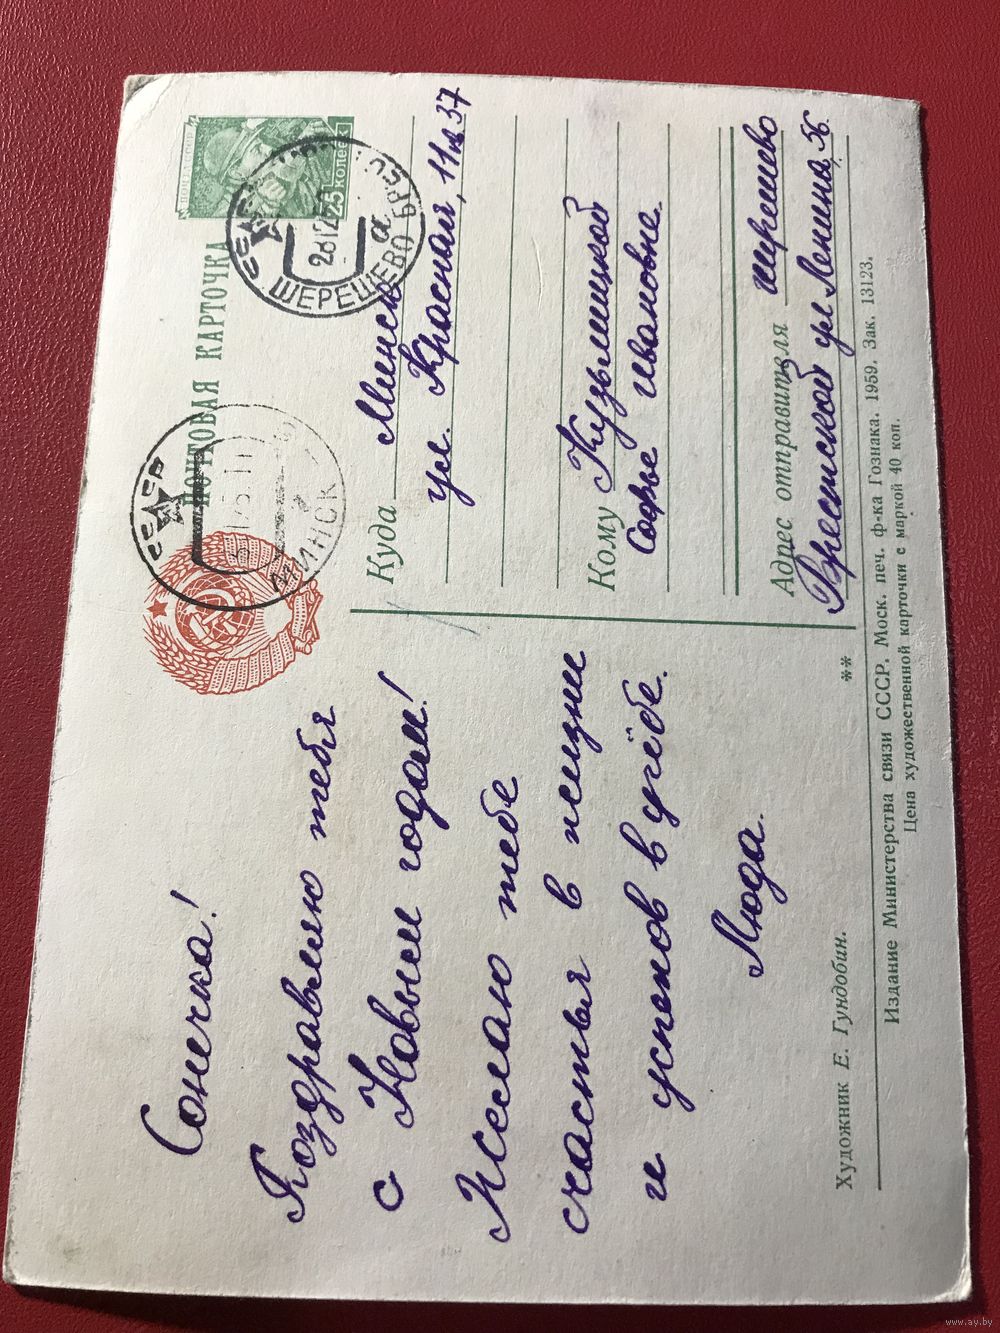 Сонечка!
Поздравляю тебя
с Новым годом!
Желаю тебе
счастья в жизни
и успехов в учёбе.
Люда.
Художник Е. Гундобин.
ПОЧТОВАЯ КАРТОЧКА
25 КОПЕЕК
СССР
ШЕРЕШЕВО БРЕС
а
СССР
МИНСК
Куда Минск
ул. Красная, 11 кв 37
Кому Кузьмицкой
Софье Ивановне.
Адрес отправителя Шерешево
Брестской ул Ленина, 56.
**
Издание Министерства связи СССР. Моск. печ. ф-ка Гознака. 1959. Зак. 13123.
Цена художественной карточки с маркой 40 коп.
www.ay.by